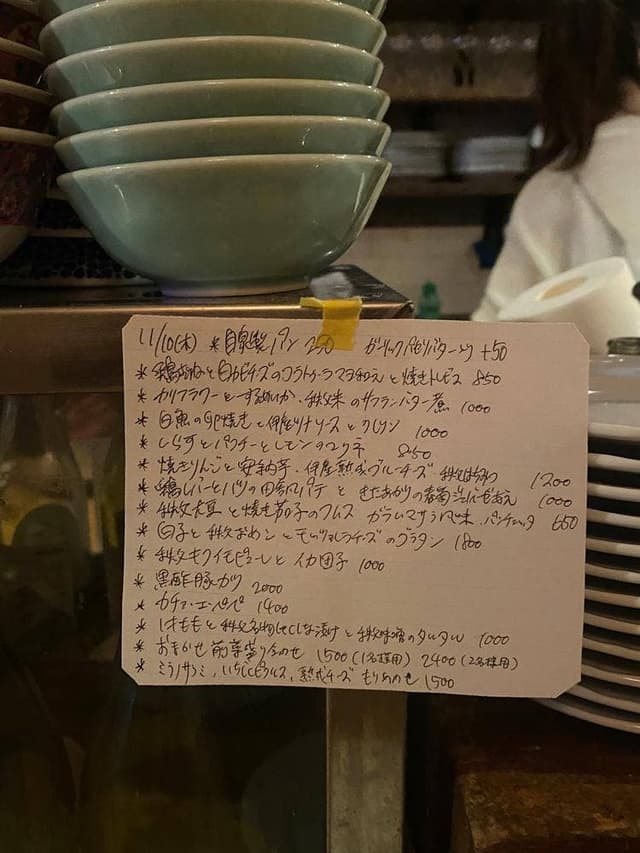 11/10(木) * 自家製パン 250 ガーリックパセリバター入り +50
* と のコラトゥーラマヨ和えと焼きトレビス 850
* カリフラワーとするめいか、秩父米のサフランバター煮 1000
* 白魚の卵焼きと とクレソン 1000
* しらすとパクチーとレモンの 850
* 焼きりんごと安納芋、伊産熟成ブルーチーズ 秩父はちみつ 1200
* 鶏レバーとハツの田舎風パテ と きたあかりの 1000
* 秩父大豆と焼き茄子のフムス ガラムマサラ風味 パンチェッタ 650
* 白子と秩父 とモッツァレラチーズのグラタン 1800
* 秩父キクイモピューレとイカ団子 1000
* 黒酢豚カツ 2000
* カチョ・エ・ペペ 1400
* と秩父名物しゃくしな漬けと秩父味噌のタルタル 1000
* おまかせ前菜盛り合わせ 1500(1名様用) 2400(2名様用)
* ミラノサラミ、いちじくピクルス、熟成チーズ もりあわせ 1500